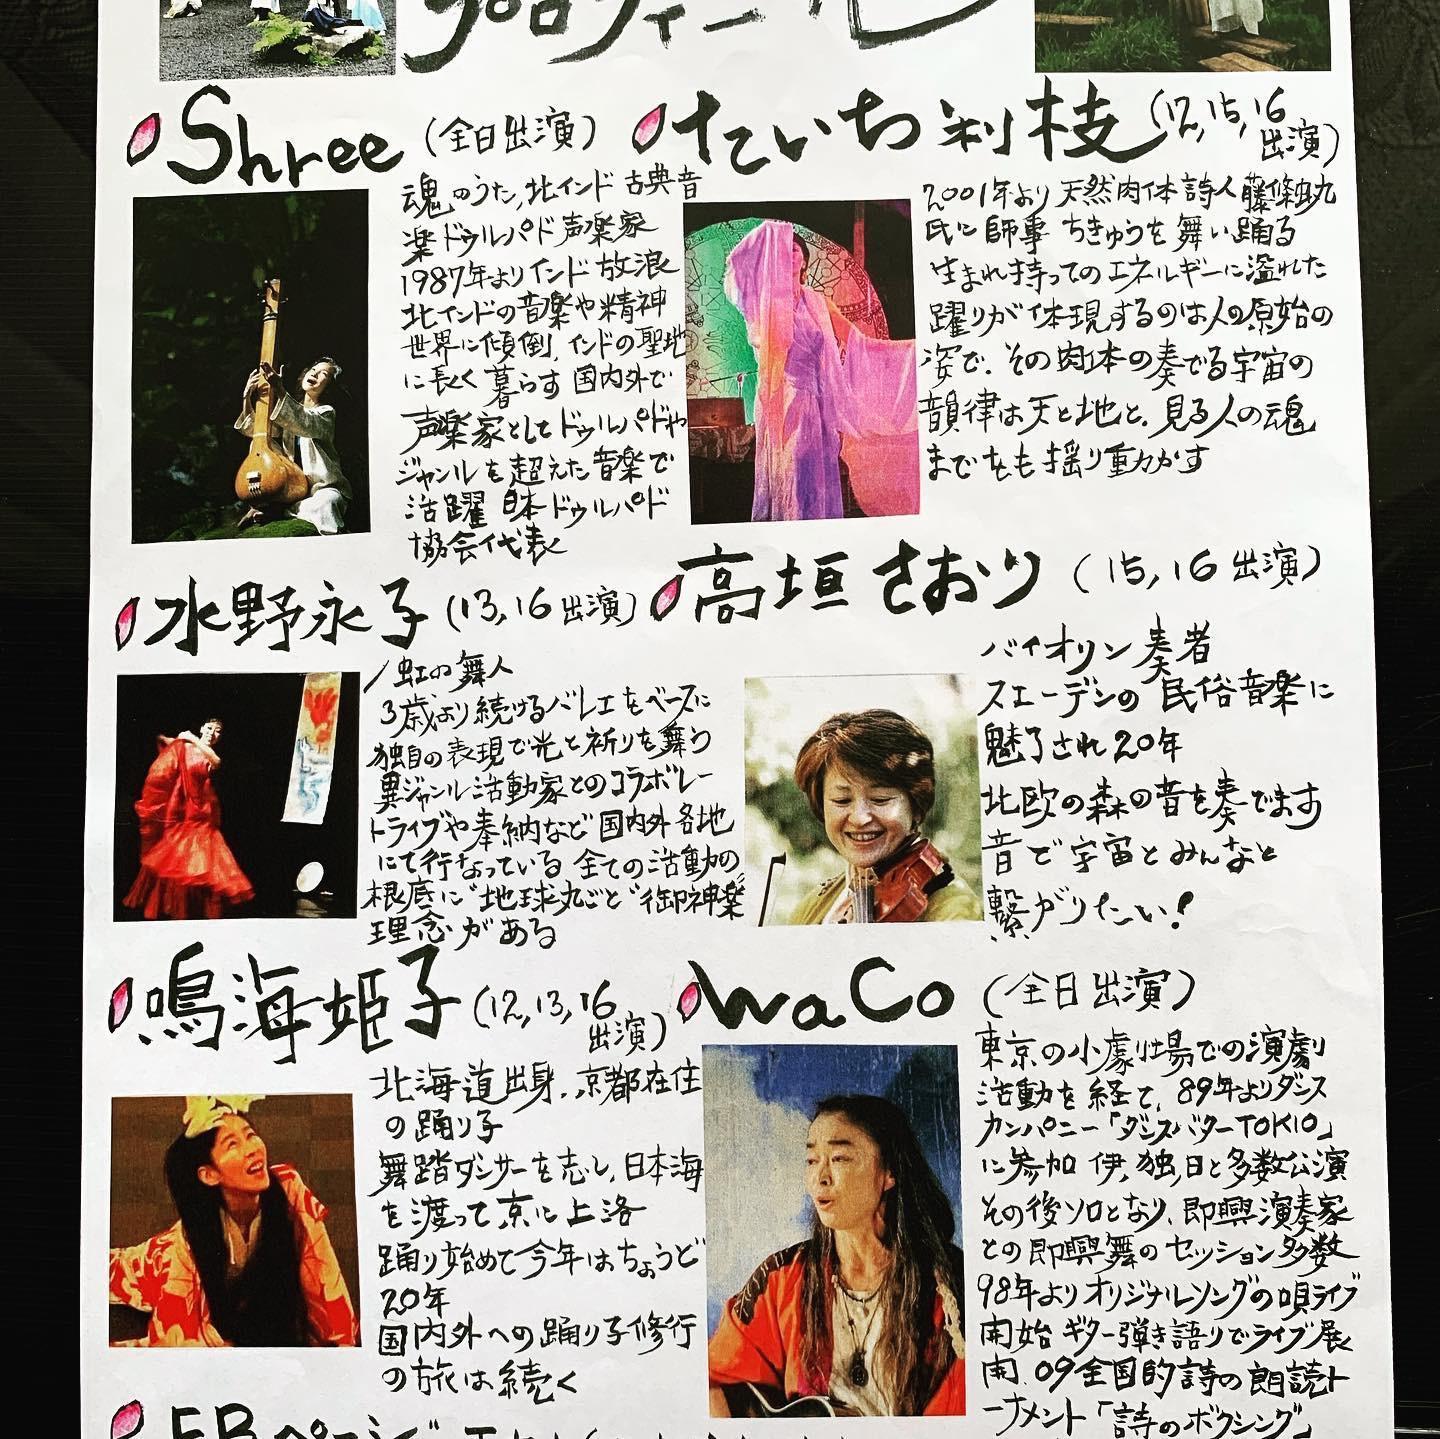 プロフィール
Shree (全日出演)
魂のうた,北インド古典音
楽ドゥルパド声楽家
1987年よりインド放浪
北インドの音楽や精神
世界に傾倒,インドの聖地
に長く暮らす 国内外で
声楽家としてドゥルパドや
ジャンルを超えた音楽で
活躍 日本ドゥルパド
協会代表
たいち利枝 (12,15,16
出演)
2001年より天然肉体詩人藤條虫丸
氏に師事 ちきゅうを舞い踊る
生まれ持ってのエネルギーに溢れた
躍りが体現するのは人の原始の
姿で、その肉体の奏でる宇宙の
韻律は天と地と、見る人の魂
までをも揺り動かす
水野永子 (13,16出演)
虹の舞人
3歳より続けるバレエをベースに
独自の表現で光と祈りを舞う
異ジャンル活動家とのコラボレー
トライブや奉納など国内外各地
にて行なっている 全ての活動の
根底に"地球丸ごと"御神楽"
理念がある
高垣さおり (15,16出演)
バイオリン奏者
スエーデンの民俗音楽に
魅了され20年
北欧の森の音を奏でます
音で宇宙とみんなと
繋がりたい!
鳴海姫子 (12,13,16
出演)
北海道出身、京都在住
の踊り子
舞踏ダンサーを志し、日本海
を渡って京に上洛
踊り始めて今年はちょうど
20年
国内外への踊り子修行
の旅は続く
waCo (全日出演)
東京の小劇場での演劇
活動を経て、89年よりダンス
カンパニー「ダンスバターTOKIO」
に参加 伊,独,日と多数公演
その後ソロとなり、即興演奏家
との即興舞のセッション多数
98年よりオリジナルソングの唄ライブ
開始 ギター弾き語りでライブ展
開、09全国的詩の朗読ト
ーナメント「詩のボクシング」